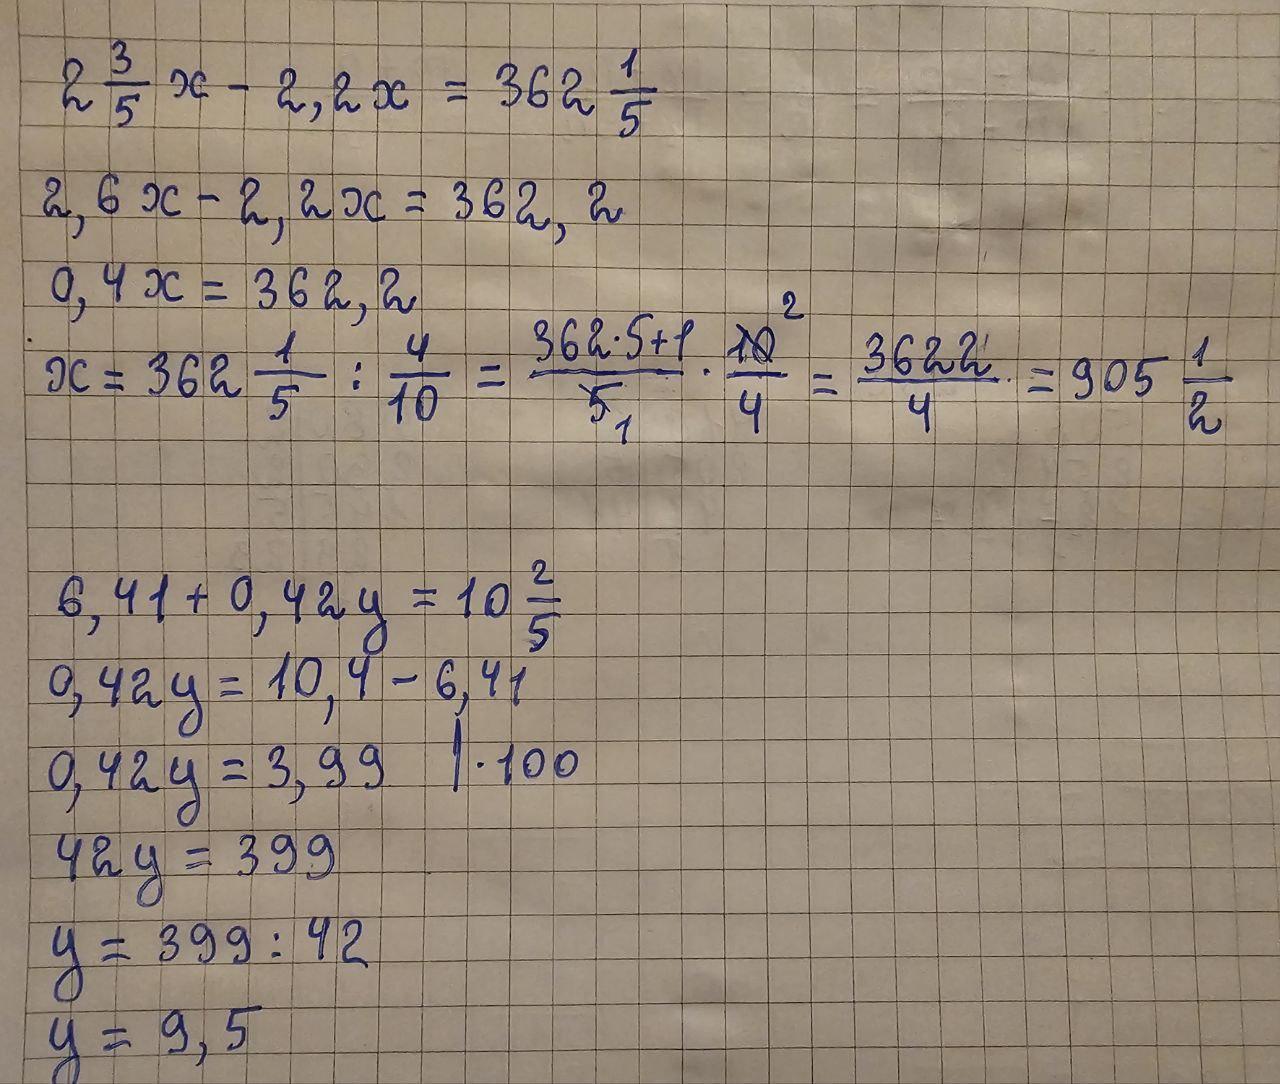 2 3/5 x - 2,2x = 362 1/5
2,6x - 2,2x = 362,2
0,4x = 362,2
x = 362 1/5 : 4/10 = 362·5+1/5 1 · 10 2/4 = 3622/4 = 905 1/2
6,41 + 0,42y = 10 2/5
0,42y = 10,4 - 6,41
0,42y = 3,99 |·100
42y = 399
y = 399 : 42
y = 9,5